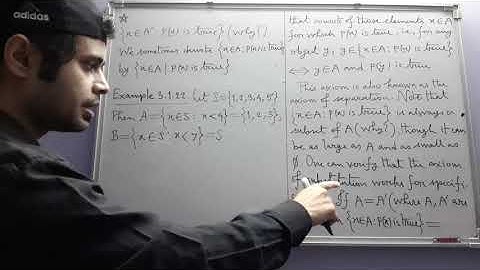 adidas
{x∈A: P(x) is true} (why?)
We sometimes denote {x∈A: P(x) is true}
by {x∈A | P(x) is true}
Example 3.1.22. Let S={1,2,3,4,5}.
Then A={x∈S: x<4}={1,2,3},
B={x∈S: x<7}=S
that consists of those elements x∈A
for which P(x) is true, i.e., for any
object y, y∈{x∈A: P(x) is true}
⟺ y∈A and P(y) is true
This axiom is also known as the
axiom of separation. Note that
{x∈A: P(x) is true} is always a
subset of A (why?), though it can
be as large as A and as small as
∅. One can verify that the axiom
works for specifi-
A=A' (where A, A' are
{x∈A: P(x) is true}=